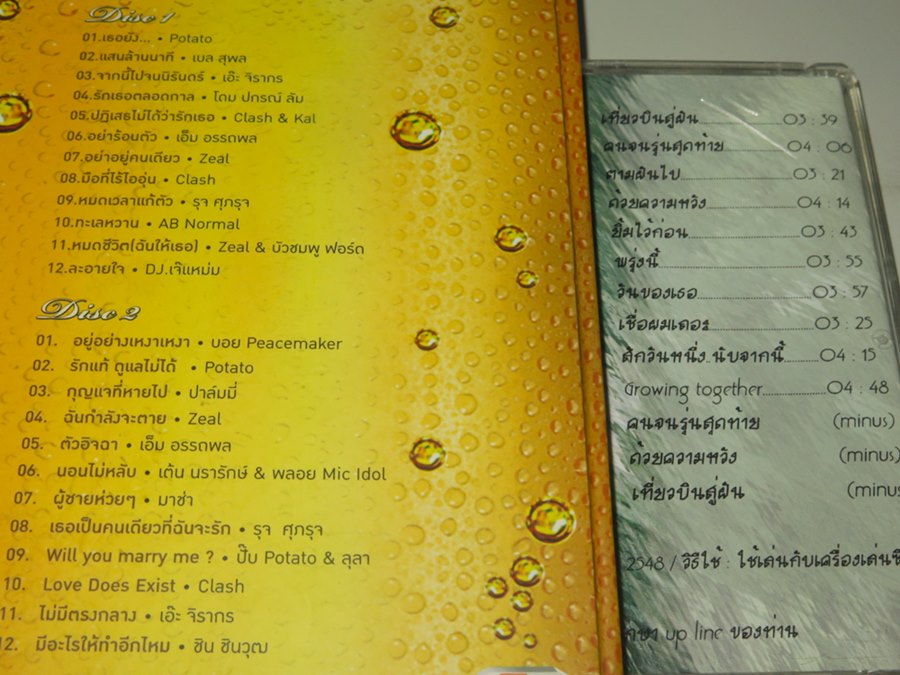 Disc 1
01.เธอยัง... • Potato
02.แสนล้านนาที • เบล สุพล
03.จากนี้ไปจนนิรันดร์ • เอ๊ะ จิรากร
04.รักเธอตลอดกาล • โดม ปกรณ์ ลัม
05.ปฏิเสธไม่ได้ว่ารักเธอ • Clash & Kal
06.อย่าร้อนตัว • เอ็ม อรรถพล
07.อย่าอยู่คนเดียว • Zeal
08.มือที่ไร้ไออุ่น • Clash
09.หมดเวลาแก้ตัว • รุจ ศุภรุจ
10.ทะเลหวาน • AB Normal
11.หมดชีวิต(ฉันให้เธอ) • Zeal & บัวชมพู ฟอร์ด
12.ละอายใจ • DJ.เจ๊แหม่ม
Disc 2
01. อยู่อย่างเหงาเหงา • บอย Peacemaker
02. รักแท้ ดูแลไม่ได้ • Potato
03. กุญแจที่หายไป • ปาล์มมี่
04. ฉันกำลังจะตาย • Zeal
05. ตัวอิจฉา • เอ็ม อรรถพล
06. นอนไม่หลับ • เต้น นรารักษ์ & พลอย Mic Idol
07. ผู้ชายห่วยๆ • มาช่า
08. เธอเป็นคนเดียวที่ฉันจะรัก • รุจ ศุภรุจ
09. Will you marry me ? • ปั๊บ Potato & ลุลา
10. Love Does Exist • Clash
11. ไม่มีตรงกลาง • เอ๊ะ จิรากร
12. มีอะไรให้ทำอีกไหม • ชิน ชินวุฒ
เที่ยวบินสู่ฝัน 03 : 39
คนจนรุ่นสุดท้าย 04 : 06
ตามฝันไป 03 : 21
ด้วยความหวัง 04 : 14
ยิ้มไว้ก่อน 03 : 43
พรุ่งนี้ 03 : 55
วันของเธอ 03 : 57
เชื่อผมเถอะ 03 : 25
สักวันหนึ่ง..นับจากนี้ 04 : 15
Growing together 04 : 48
คนจนรุ่นสุดท้าย (minus)
ด้วยความหวัง (minus)
เที่ยวบินสู่ฝัน (minus
2548 / วิธีใช้ : ใช้เล่นกับเครื่องเล่นซี
up line ของท่าน